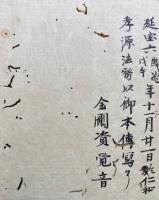 延宝六戊午年十一月廿一日於仁和
孝源法務以御本傳写了
金剛資覚音